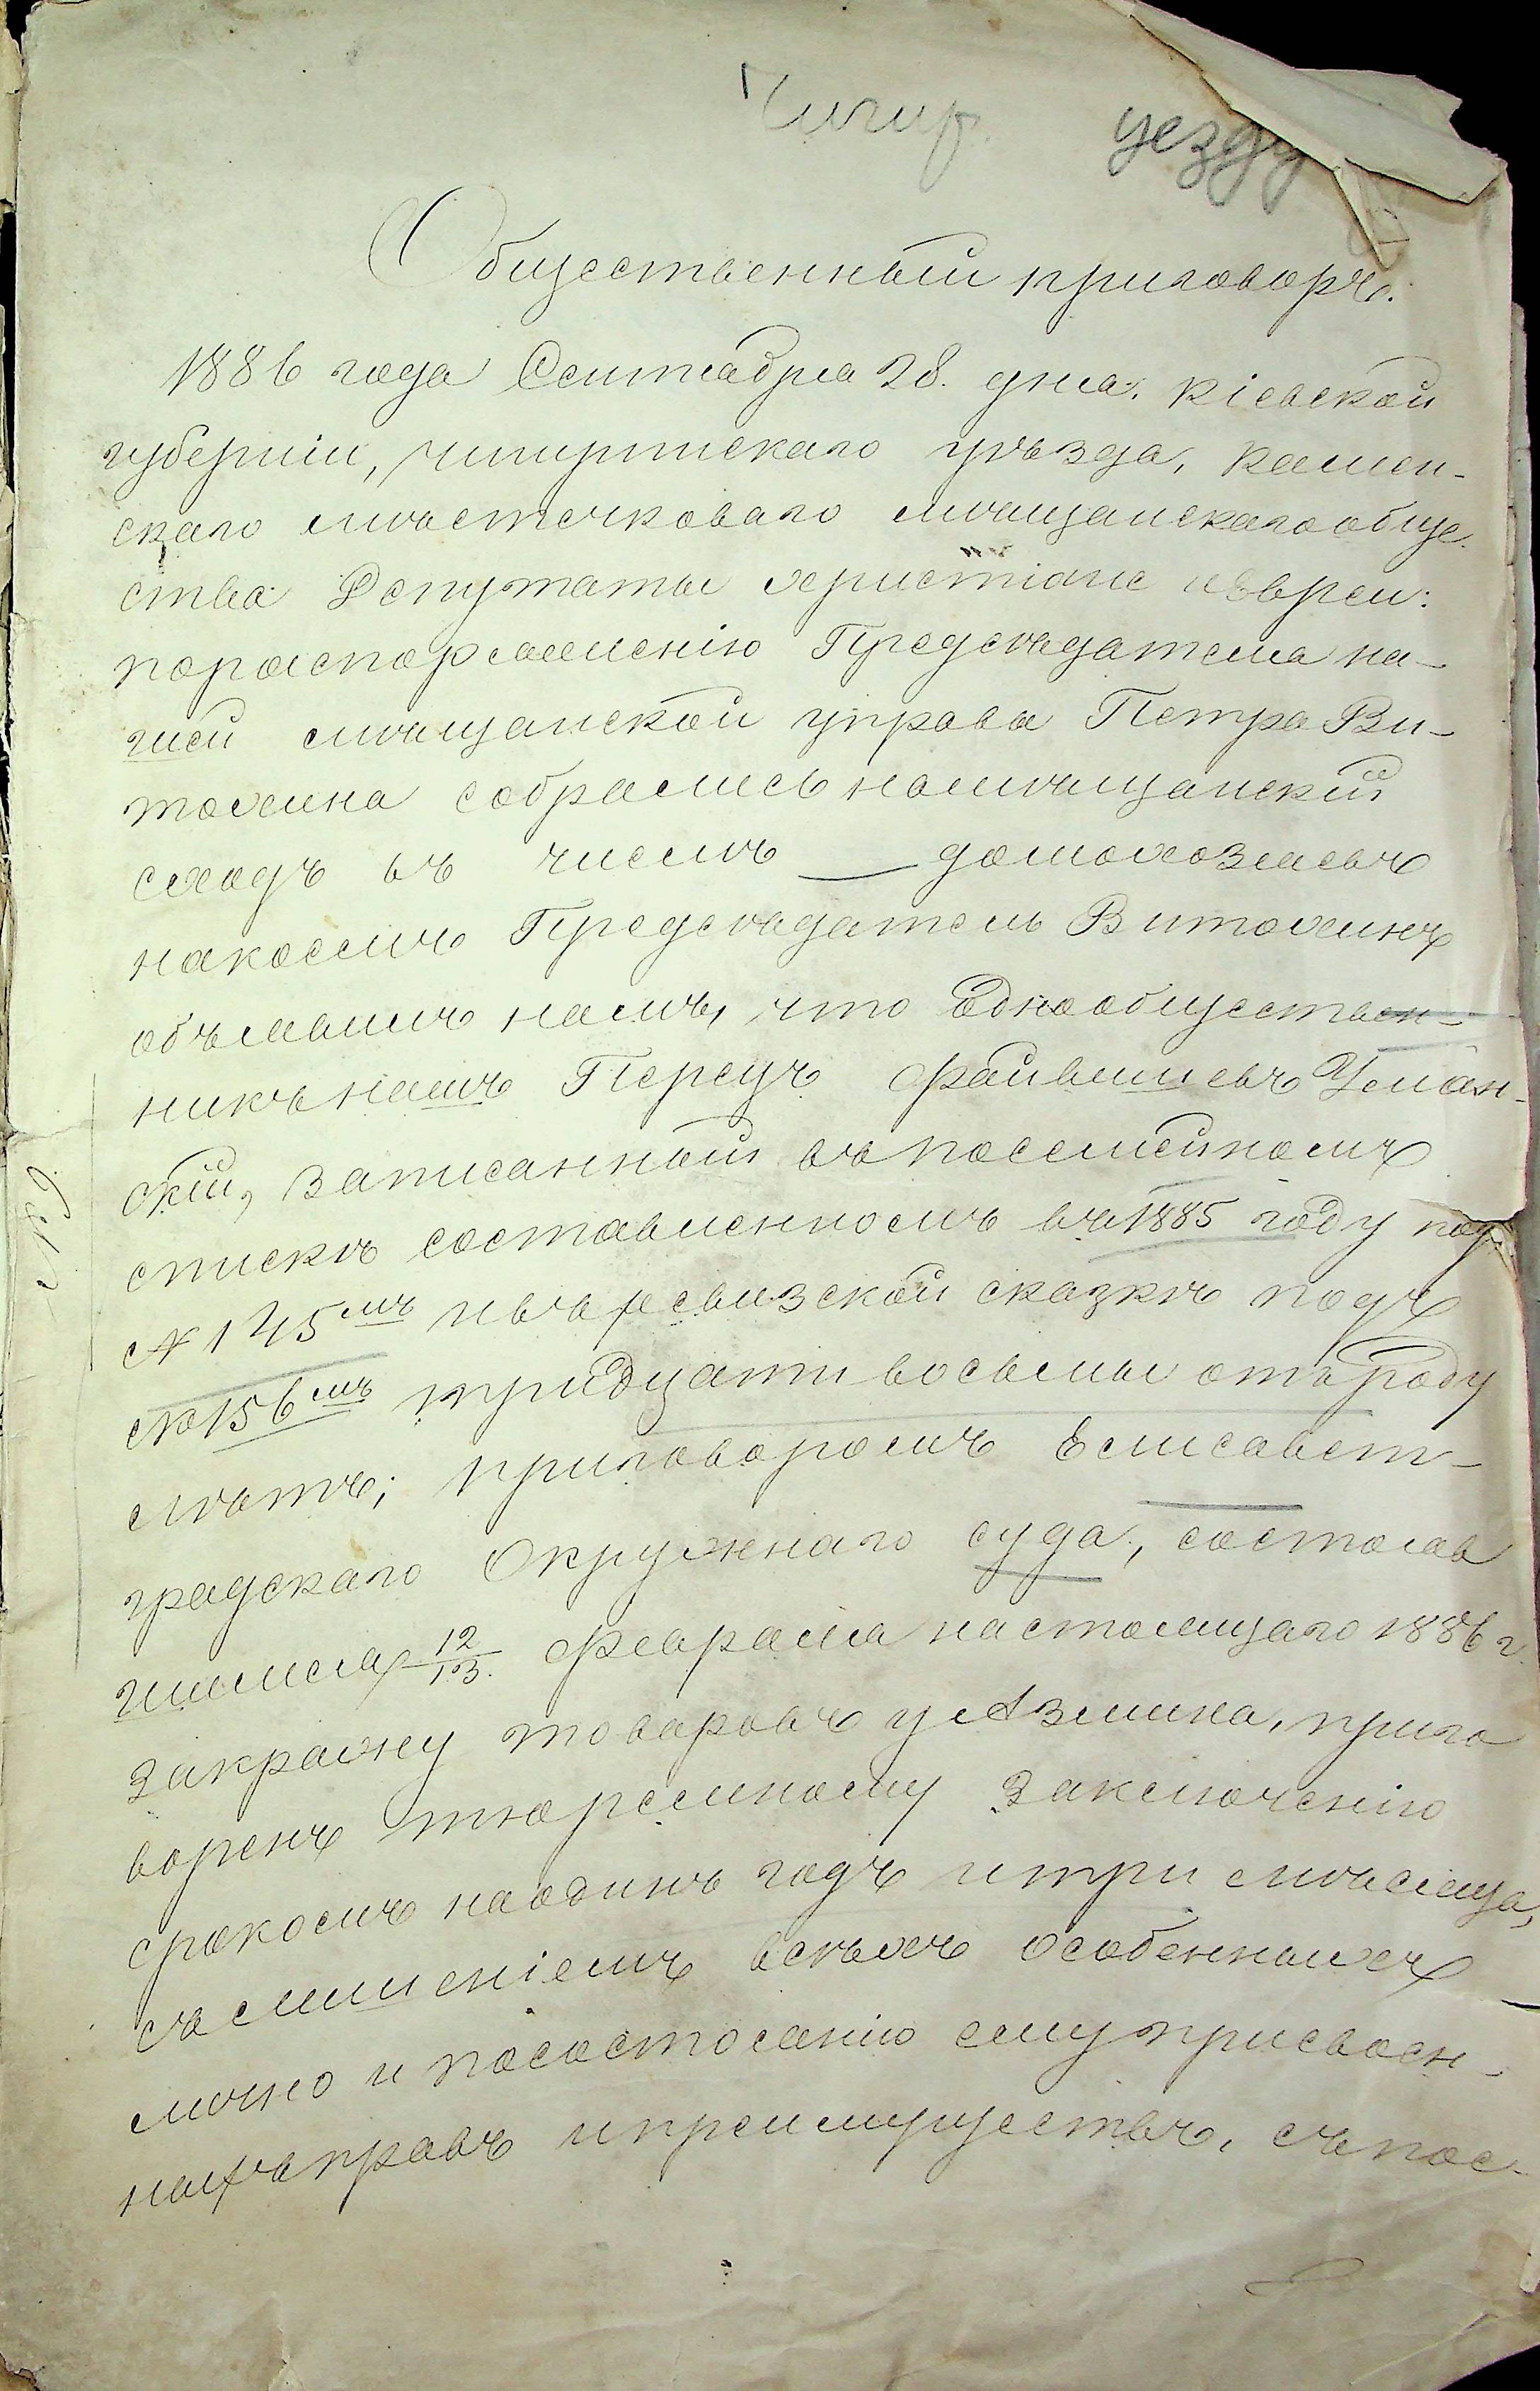 Чигир. уезду
Общественный приговоръ.
1886 года Сентября 28. дня. Кіевской
губерніи, чигиринскаго уѣзда, Камен-
скаго мѣстечковаго мѣщанскаго обще-
ства Депутаты христіане и евреи:
по распоряженію Предсѣдателя на-
шей мѣщанской управы Петра Ви-
тохина собрались на мѣщанскій
сходъ въ числѣ — домохозяевъ
на коемъ Предсѣдатель Витохинъ
объявилъ намъ, что Однообществен-
никъ нашъ Перецъ Файвишевъ Уман-
скій, записанный въ посемейномъ
спискѣ составленномъ въ 1885 году под
№ 145мъ и въ ревизской сказкѣ подъ
№ 156мъ тридцати восьмы отъ роду
лѣтъ; приговоромъ Елисавет-
градскаго Окружнаго суда, состояв
шимся 12/13. февраля настоящаго 1886 г.
за кражу товаровъ у Азмина, приго
воренъ тюремному заключенію
срокомъ на одинъ годъ и три мѣсяца,
съ лишеніемъ всѣхъ особенныхъ
лично и по состоянію ему присвоен-
ныхъ правъ и преимуществъ, съ пос-